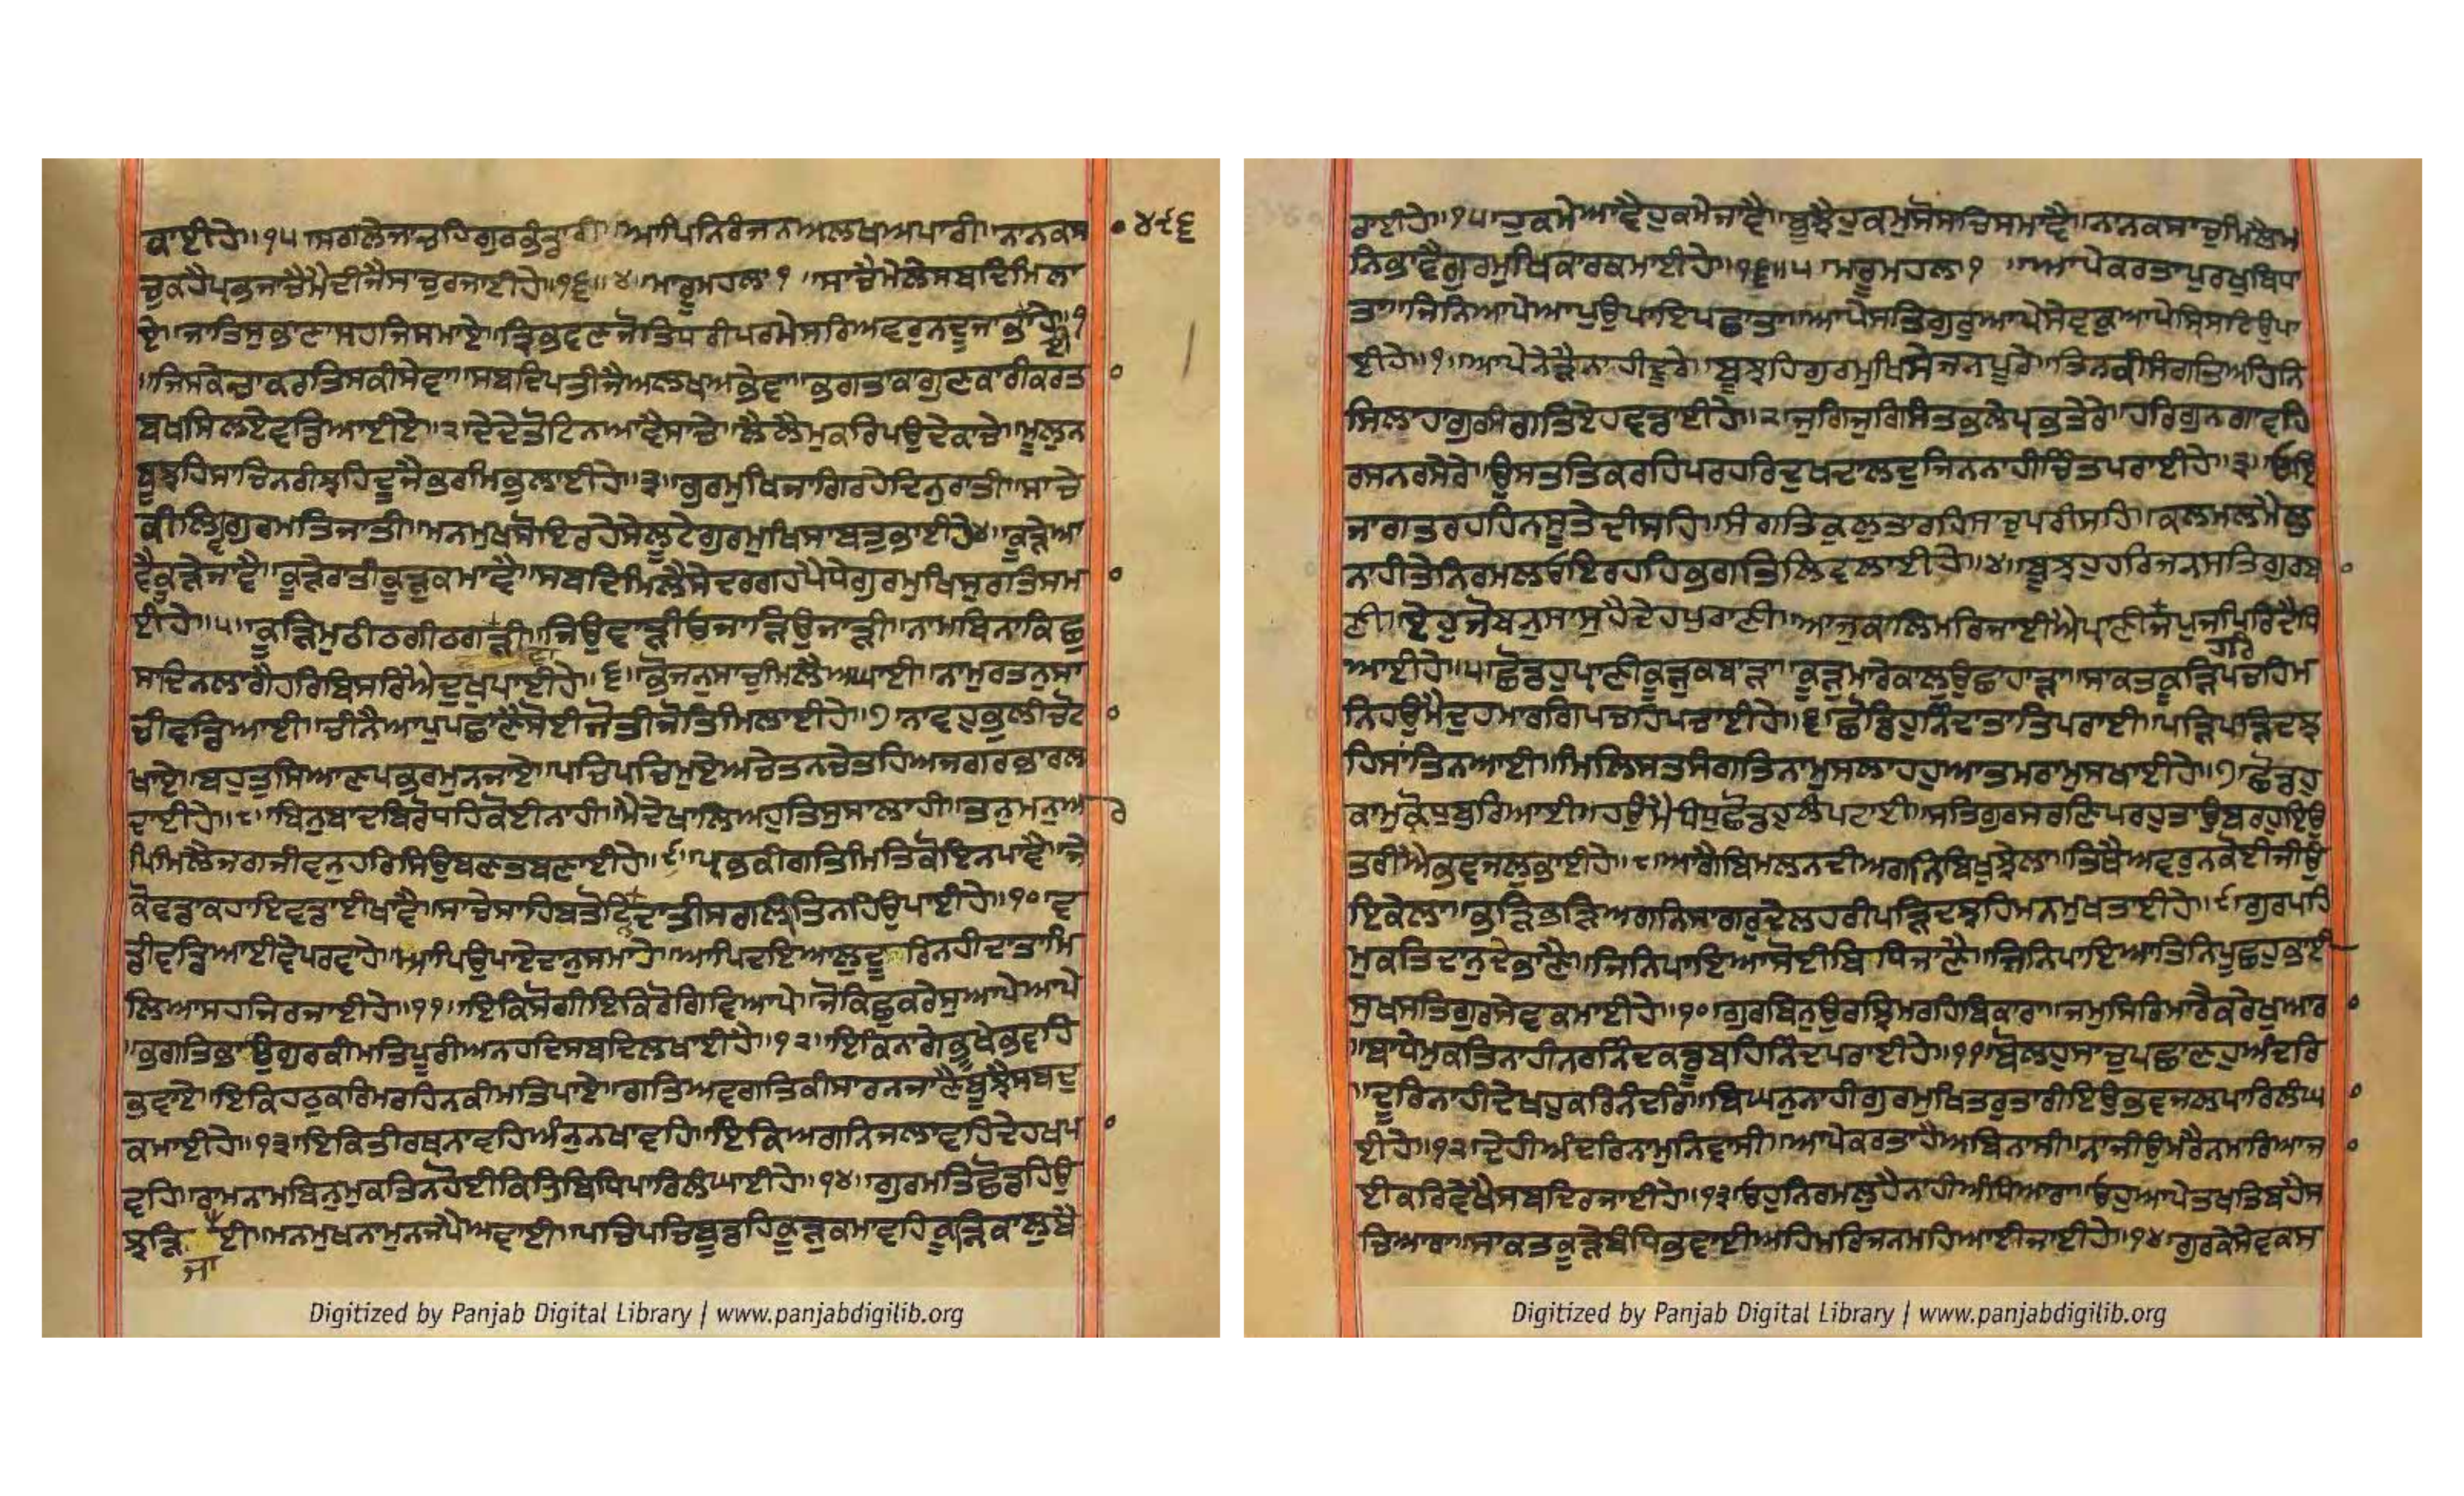 ਕਾਈਹੇ॥੧੫ਸਗਲੇਜਾਚਹਿਗੁਰਭੰਡਾਰੀ॥ਆਪਿਨਿਰੰਜਨਅਲਖਅਪਾਰੀ॥ਨਾਨਕਸ
ਚੁਕਹੈਪ੍ਰਭਜਾਚੈਮੈਦੀਜੈਸਾਚੁਰਜਾਈਹੇ॥੧੬॥੪॥ਮਾਰੂਮਹਲਾ੧॥ਸਾਚੈਮੇਲੇਸਬਦਿਮਿਲਾ
ਏ॥ਜਾਤਿਸੁਭਾਣਾਸਹਜਿਸਮਾਏ॥ਤ੍ਰਿਭਵਣਜੋਤਿਧਰੀਪਰਮੇਸਰਿਅਵਰੁਨਦੂਜਾਭਾਈਹੇ॥੧
॥ਜਿਸਕੇਚਾਕਰਤਿਸਕੀਸੇਵਾ॥ਸਬਦਿਪਤੀਜੈਅਲਖਅਭੇਵਾ॥ਭਗਤਾਕਾਗੁਣਕਾਰੀਕਰਤਾ
ਬਖਸਿਲਏਵਡਿਆਈਹੇ॥੨ਦੇਦੇਤੋਟਿਨਆਵੈਸਾਚੇ॥ਲੈਲੈਮੁਕਰਿਪਉਦੇਕਾਚੇ॥ਮੂਲੁਨ
ਬੂਝਹਿਸਾਚਿਨਰੀਝਹਿਦੂਜੈਭਰਮਿਭੁਲਾਈਹੇ॥੩॥ਗੁਰਮੁਖਿਜਾਗਿਰਹੇਦਿਨੁਰਾਤੀ॥ਸਾਚੇ
ਕੀਲਿਵਗੁਰਮਤਿਜਾਤੀ॥ਮਨਮੁਖਸੋਇਰਹੇਸੇਲੂਟੇਗੁਰਮੁਖਿਸਾਬਤੁਭਾਈਹੇ੪॥ਕੂੜੇਆ
ਵੈਕੂੜੇਜਾਵੈ॥ਕੂੜੇਰਾਤੀਕੂੜੁਕਮਾਵੈ॥ਸਬਦਿਮਿਲੈਸੇਦਰਗਹਪੈਧੇਗੁਰਮੁਖਿਸੁਰਤਿਸਮਾ
ਈਹੇ॥੫॥ਕੂੜਿਮੁਠੀਠਗੀਠਗਵਾੜੀ॥ਜਿਉਵਾੜੀਓਜਾੜਿਉਜਾੜੀ॥ਨਾਮਬਿਨਾਕਿਛੁ
ਸਾਦਿਨਲਾਗੈਹਰਿਬਿਸਰਿਐਦੁਖੁਪਾਈਹੇ॥੬॥ਭੋਜਨੁਸਾਚੁਮਿਲੈਆਘਾਈ॥ਨਾਮੁਰਤਨੁਸਾ
ਚੀਵਡਿਆਈ॥ਚੀਨੈਆਪੁਪਛਾਣੈਸੋਈਜੋਤੀਜੋਤਿਮਿਲਾਈਹੇ॥੭ਨਾਵਹੁਭੁਲੀਚੋਟਾ
ਖਾਏ॥ਬਹੁਤੁਸਿਆਣਪਭਰਮੁਨਜਾਏ॥ਪਚਿਪਚਿਮੁਏਅਚੇਤਨਚੇਤਹਿਅਜਗਰਭਾਰਲ
ਦਾਈਹੇ॥੮॥ਬਿਨੁਬਾਦਬਿਰੋਧਹਿਕੋਈਨਾਹੀ॥ਮੈਦੇਖਾਲਿਅਹੁਤਿਸੁਸਾਲਾਹੀ॥ਤਨੁਮਨੁਅਰ
ਪਿਮਿਲੈਜਗਜੀਵਨੁਹਰਿਸਿਉਬਣਤਬਣਾਈਹੇ॥੯॥ਪ੍ਰਭਕੀਗਤਿਮਿਤਿਕੋਇਨਪਾਵੈ॥ਜੇ
ਕੋਵਡਾਕਹਾਇਵਡਾਈਖਾਵੈ॥ਸਾਚੇਸਾਹਿਬਤੋਟਿਨਦਾਤੀਸਗਲੀਤਿਨਹਿਉਪਾਈਹੇ॥੧੦॥ਵ
ਡੀਵਡਿਆਈਵੇਪਰਵਾਹੇ॥ਆਪਿਉਪਾਏਦਾਨੁਸਮਾਹੇ॥ਆਪਿਦਇਆਲੁਦੂਰਿਨਹੀਦਾਤਾਮਿ
ਲਿਆਸਹਜਿਰਜਾਈਹੇ॥੧੧॥ਇਕਿਸੋਗੀਇਕਿਰੋਗਿਵਿਆਪੇ॥ਜੋਕਿਛੁਕਰੇਸੁਆਪੇਆਪੇ
॥ਭਗਤਿਭਾਉਗੁਰਕੀਮਤਿਪੂਰੀਅਨਹਦਿਸਬਦਿਲਖਾਈਹੇ॥੧੨॥ਇਕਿਨਾਗੇਭੂਖੇਭਵਹਿ
ਭਵਾਏ॥ਇਕਿਹਠੁਕਰਿਮਰਹਿਨਕੀਮਤਿਪਾਏ॥ਗਤਿਅਵਗਤਿਕੀਸਾਰਨਜਾਣੈਬੂਝੈਸਬਦੁ
ਕਮਾਈਹੇ॥੧੩॥ਇਕਿਤੀਰਥਨਾਵਹਿਅੰਨੁਨਖਾਵਹਿ॥ਇਕਿਅਗਨਿਜਲਾਵਹਿਦੇਹਖਪਾ
ਵਹਿ॥ਰਾਮਨਾਮਬਿਨੁਮੁਕਤਿਨਹੋਈਕਿਤੁਬਿਧਿਪਾਰਿਲੰਘਾਈਹੇ॥੧੪॥ਗੁਰਮਤਿਛੋਡਹਿਉ
ਝੜਿਜਾਈ॥ਮਨਮੁਖਨਾਮੁਨਜਪੈਅਵਾਈ॥ਪਚਿਪਚਿਬੂਡਹਿਕੂੜੁਕਮਾਵਹਿਕੂੜਿਕਾਲੁਬੈ
੪੯੬
ਰਾਈਹੇ॥੧੫॥ਹੁਕਮੇਆਵੈਹੁਕਮੇਜਾਵੈ॥ਬੂਝੈਹੁਕਮੁਸੋਸਾਚਿਸਮਾਵੈ॥ਨਾਨਕਸਾਚੁਮਿਲੈਮ
ਨਿਭਾਵੈਗੁਰਮੁਖਿਕਾਰਕਮਾਈਹੇ॥੧੬॥੫॥ਮਾਰੂਮਹਲਾ੧॥ਆਪੇਕਰਤਾਪੁਰਖੁਬਿਧਾ
ਤਾ॥ਜਿਨਿਆਪੇਆਪੁਉਪਾਇਪਛਾਤਾ॥ਆਪੇਸਤਿਗੁਰੁਆਪੇਸੇਵਕੁਆਪੇਸ੍ਰਿਸਟਿਉਪਾ
ਈਹੇ॥੧॥ਆਪੇਨੇੜੈਨਾਹੀਦੂਰੇ॥ਬੂਝਹਿਗੁਰਮੁਖਿਸੇਜਨਪੂਰੇ॥ਤਿਨਕੀਸੰਗਤਿਅਹਿਨਿ
ਸਿਲਾਹਾਗੁਰਸੰਗਤਿਏਹਵਡਾਈਹੇ॥੨॥ਜੁਗਿਜੁਗਿਸੰਤਭਲੇਪ੍ਰਭਤੇਰੇ॥ਹਰਿਗੁਨਗਾਵਹਿ
ਰਸਨਰਸੇਰੇ॥ਉਸਤਤਿਕਰਹਿਪਰਹਰਿਦੁਖਦਾਲਦੁਜਿਨਨਾਹੀਚਿੰਤਪਰਾਈਹੇ॥੩॥ਓਇ
ਜਾਗਤਰਹਹਿਨਸੂਤੇਦੀਸਹਿ॥ਸੰਗਤਿਕੁਲਤਾਰਹਿਸਾਚੁਪਰੀਸਹਿ॥ਕਲਮਲਮੈਲੁ
ਨਾਹੀਤੇਨਿਰਮਲਓਇਰਹਹਿਭਗਤਿਲਿਵਲਾਈਹੇ॥੪॥ਬੂਝਹੁਹਰਿਜਨਸਤਿਗੁਰਬਾ
ਣੀ॥ਏਹੁਜੋਬਨੁਸਾਸੁਹੈਦੇਹਪੁਰਾਣੀ॥ਆਜੁਕਾਲਿਮਰਿਜਾਈਐਪ੍ਰਾਣੀਹਰਿਜਪੁਜਪਿਰਿਦੈਧਿ
ਆਈਹੇ॥੫ਛੋਡਹੁਪ੍ਰਾਣੀਕੂੜੁਕਬਾੜਾ॥ਕੂੜੁਮਾਰੇਕਾਲੁਉਛਾਹਾੜਾ॥ਸਾਕਤਕੂੜਿਪਚਹਿਮ
ਨਿਹਉਮੈਦੁਹਮਾਰਗਿਪਚਹਿਪਚਾਈਹੇ॥੬॥ਛੋਡਿਹੁਨਿੰਦਾਤਾਤਿਪਰਾਈ॥ਪੜਿਪੜਿਦਝ
ਹਿਸਾਤਿਨਆਈ॥ਮਿਲਿਸਤਸੰਗਤਿਨਾਮੁਸਲਾਹਹੁਆਤਮਰਾਮੁਸਖਾਈਹੇ॥੭॥ਛੋਡਹੁ
ਕਾਮੁਕ੍ਰੋਧੁਬੁਰਿਆਈ॥ਹਉਮੈਧੰਧੁਛੋਡਹੁਲੰਪਟਾਈ॥ਸਤਿਗੁਰਸਰਣਿਪਰਹੁਤਾਉਬਰਹੁਇਉ
ਤਰੀਐਭਵਜਲੁਭਾਈਹੇ॥੮॥ਆਗੈਬਿਮਲਨਦੀਅਗਨਿਬਿਖੁਝੇਲਾ॥ਤਿਥੈਅਵਰੁਨਕੋਈਜੀਉ
ਇਕੇਲਾ॥ਭੜਭੜਅਗਨਿਸਾਗਰੁਦੇਲਹਰੀਪੜਿਦਝਹਿਮਨਮੁਖਤਾਈਹੇ॥੯॥ਗੁਰਪਹਿ
ਮੁਕਤਿਦਾਨੁਦੇਭਾਣੈ॥ਜਿਨਿਪਾਇਆਸੋਈਬਿਧਿਜਾਣੈ॥ਜਿਨਿਪਾਇਆਤਿਨਿਪੂਛਹੁਭਾਈ
ਸੁਖਸਤਿਗੁਰਸੇਵਕਮਾਈਹੇ॥੧੦॥ਗੁਰਬਿਨੁਉਰਝਿਮਰਹਿਬਿਕਾਰਾ॥ਜਮੁਸਿਰਿਮਾਰੇਕਰੇਖੁਆਰਾ
॥ਬਾਧੇਮੁਕਤਿਨਾਹੀਨਰਨਿੰਦਕਡੂਬਹਿਨਿੰਦਪਰਾਈਹੇ॥੧੧॥ਬੋਲਹੁਸਾਚੁਪਛਾਣਹੁਅੰਦਰਿ
॥ਦੂਰਿਨਾਹੀਦੇਖਹੁਕਰਿਨੰਦਰਿ॥ਬਿਘਨੁਨਾਹੀਗੁਰਮੁਖਿਤਰੁਤਾਰੀਇਉਭਵਜਲੁਪਾਰਿਲੰਘਾ
ਈਹੇ॥੧੨॥ਦੇਹੀਅੰਦਰਿਨਾਮੁਨਿਵਾਸੀ॥ਆਪੇਕਰਤਾਹੈਅਬਿਨਾਸੀ॥ਨਾਜੀਉਮਰੈਨਮਾਰਿਆਜਾ
ਈਕਰਿਵੇਖੈਸਬਦਿਰਜਾਈਹੇ॥੧੩॥ਓਹੁਨਿਰਮਲੁਹੈਨਾਹੀਅੰਧਿਆਰਾ॥ਓਹੁਆਪੇਤਖਤਿਬਹੈਸ
ਚਿਆਰਾ॥ਸਾਕਤਕੂੜੇਬੰਧਿਭਵਾਈਅਹਿਮਰਿਜਨਮਹਿਆਈਜਾਈਹੇ॥੧੪॥ਗੁਰਕੇਸੇਵਕਸ
Digitized by Panjab Digital Library | www.panjabdigilib.org
Digitized by Panjab Digital Library | www.panjabdigilib.org